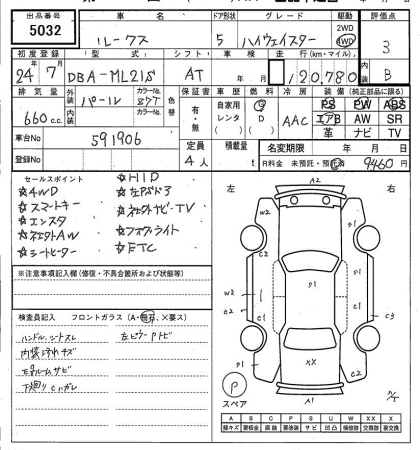 出品番号 5032
車名 ルークス
ドア形状 5
グレード ハイウェイスター
駆動 2WD 4WD
評価点 3
初度登録 24年7月
型式 DBA-ML21S
シフト AT
車検 年 月
走行(km・マイル) 120,780
内装 B
排気量 660 c.c.
外装 パール
カラーNo. 87T
内装 カラーNo.
色替
保証書 有・無
車歴 自家用 レンタ
燃料 G D
冷房 AAC
装備(純正部品に限る)
PS PW ABS
エアB AW SR
革 ナビ TV
車台No 591906
登録No
定員 4人
積載量 t
名変期限 年 月 日
R料金 未預託・預託済 9460円
セールスポイント
☆4WD
☆スマートキー
☆エンスタ
☆社外AW
☆シートヒーター
☆HID
☆左Pスライド
☆社外ナビ・TV
☆フォグライト
☆ETC
※注意事項記入欄(修復・不具合箇所および状態等)
検査員記入 フロントガラス(A・飛石、×要ス)
ハンドル、シートスレ
内装汚れキズ
下回りサビ
左ピラーPトビ
左 右
A2
W2
C2
W2
C2
C1
P1
P1
P1
C1
C3
XX
P1
C2
A1
P
スペア
A B C P S U W X XX
線キズ 要板金 腐蝕 要塗装 サビ 凹凸 補修跡 要交換 交換済